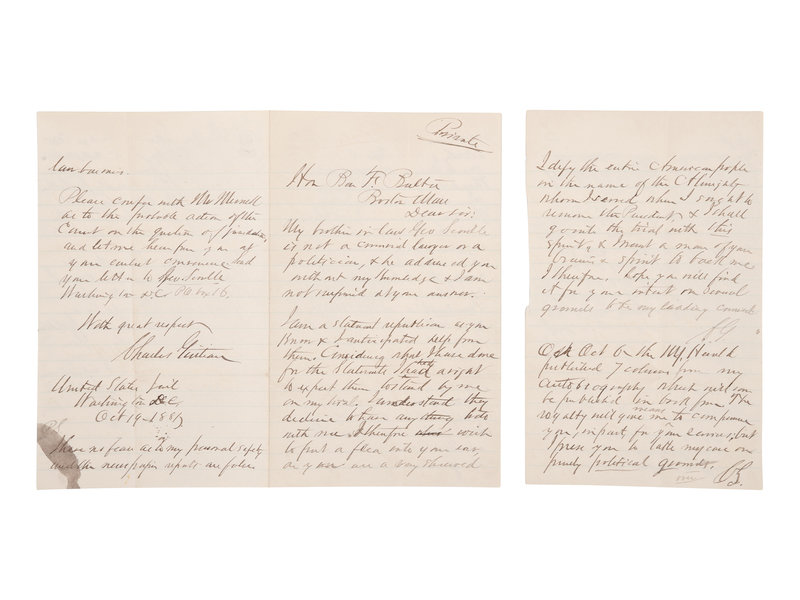 Please confer with Mr Merrick
as to the probable action of the
Court on the question of jurisdiction,
and let me hear from you at
your earliest convenience. Send
your letter to Geo Scoville
Washington D.C. PO Box 16.
With great respect
Charles Guiteau
United States Jail
Washington DC
Oct 19-1881
PS
I have no fear as to my personal safety
and the newspaper reports are false
Private
Hon Ben F. Butler
Boston Mass
Dear Sir:
My brother in law Geo Scoville
is not a criminal lawyer or a
politician, & he addressed you
without my knowledge & I am
not surprised at your answer.
I am a stalwart republican as you
know & I anticipated help from
them. Considering what I have done
for the stalwarts I had a right
to expect them to stand by me
on my trial. I understand they
decline to have anything to do
with me. I therefore wish
to put a flea into your ear,
as you are a very shrewd
I defy the entire American people
in the name of the Almighty
whom I served when I sought to
remove the President, & I shall
go into the trial with this
spirit, & I want a man of your
brains & spirit to back me
I therefore hope you will find
it for your interest on several
grounds to be my leading counsel
Oct 6 the NY Herald
published 7 columns from my
autobiography which will soon
be published in book form. The
royalty will give me means to compensate
you, in part, for your services, but
I press you to take my case on
purely political grounds.